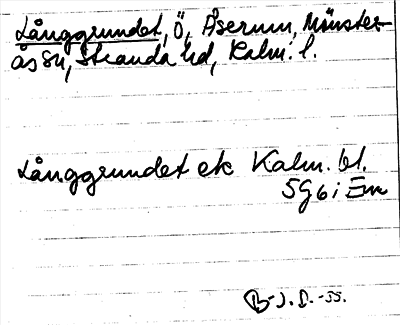 Långgrundet, Ö, Åserum, Mönster-
ås sn, Stranda hd, Kalm. l.
Långgrundet ek Kalm. bl.
5G6i Em
B-J. D. -55.